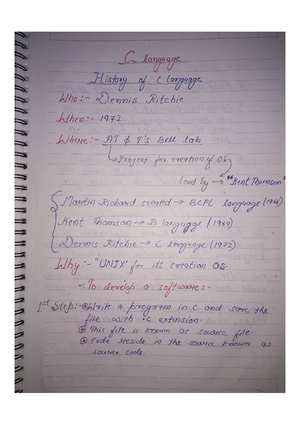 C language
History of C language
Who:- Dennis Ritchie
When:- 1972
Where:- AT & T's Bell lab
Project for creation of OS
lead by → "Kent Thomson"
Martin Richard created → BCPL language (1966)
Kent Thomson → B language (1969)
Dennis Ritchie → C language (1972)
Why:- "UNIX" for its creation OS.
-To develop a software:-
1st Step:- Write a program in C and save the
file with .c extension.
This file is known as source file.
Code reside in the source known as
source code.